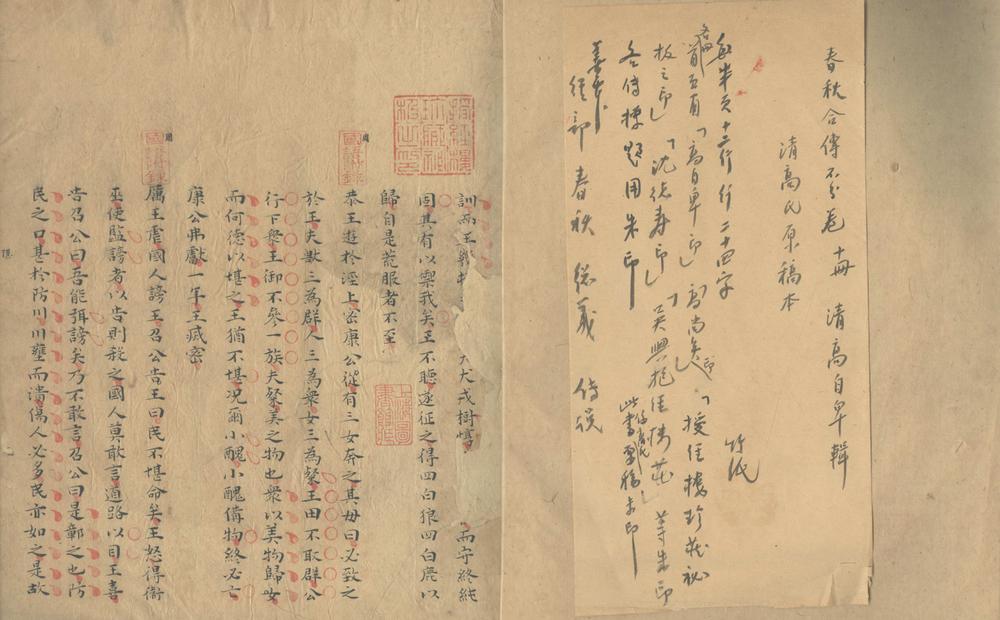 春秋合傳不分卷 十冊 清高自卑輯
清高氏原稿本
竹紙
每半頁十二行行二十四字
各冊首頁「高自卑印」「高尚矣印」「授經樓珍藏秘
板之印」「沈德壽印」「吳興抱經樓藏」等朱印
各傳標題用朱印
善本
經部 春秋 總義 傳說
授經樓珍藏秘板之印
訓而王幾 犬戎樹惇 而守終純
固其有以禦我矣王不聽遂征之得四白狼四白鹿以
歸自是荒服者不至
上海圖書館藏
國語錄
恭王遊於涇上密康公從有三女奔之其母曰必致之
於王夫獸三為群人三為衆女三為粲王田不取群公
行下衆王御不參一族夫粲美之物也衆以美物歸女
而何德以堪之王猶不堪况爾小醜小醜備物終必亡
康公弗獻一年王滅密
國語錄
厲王虐國人謗王召公告王曰民不堪命矣王怒得衛
巫使監謗者以告則殺之國人莫敢言道路以目王喜
告召公曰吾能弭謗矣乃不敢言召公曰是鄣之也防
民之口甚於防川川壅而潰傷人必多民亦如之是故